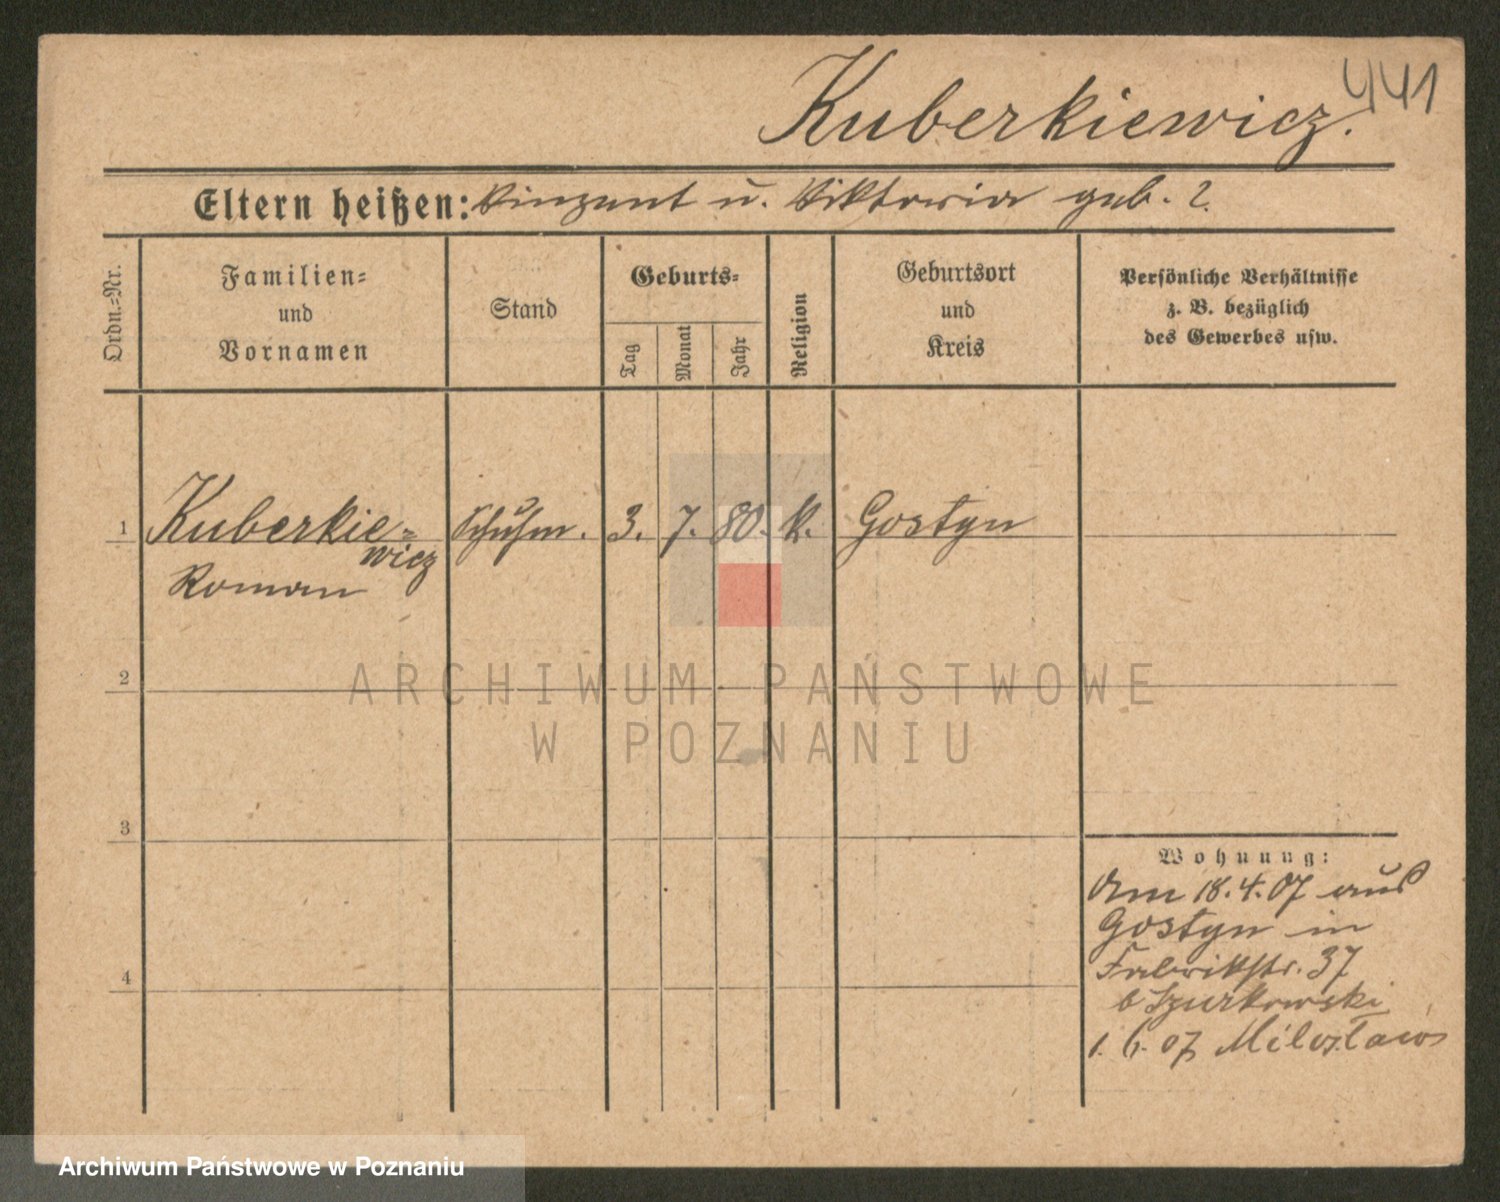 441
Kuberkiewicz.
Eltern heißen: Vinzent u. Viktoria geb. ?.
Ordn.=Nr.
Familien=
und
Vornamen
Stand
Geburts=
Tag
Monat
Jahr
Religion
Geburtsort
und
Kreis
Persönliche Verhältnisse
z. B. bezüglich
des Gewerbes usw.
1 Kuberkie= Schuhm. 3. 7. 80. k. Gostyn
wicz
Roman
2
3
4
Wohnung:
Am 18.4.07 aus
Gostyn in
Fabrikstr. 37
b Szurkowski
1. 6. 07 Miloslaw
ARCHIWUM PAŃSTWOWE
W POZNANIU
Archiwum Państwowe w Poznaniu